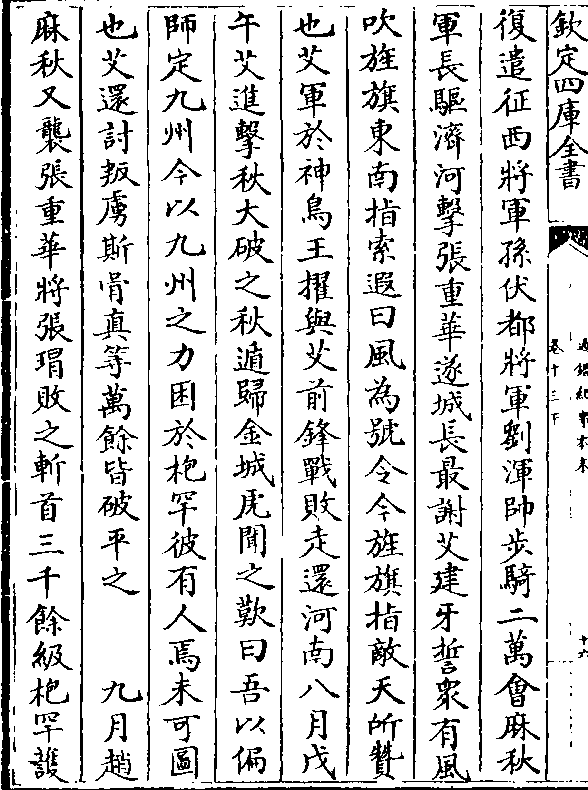 欽定四庫全書
通鑑紀事本末
卷十三下
十六
復遣征西將軍孫伏都將軍劉渾帥步騎二萬會麻秋
軍長驅濟河擊張重華遂城長最謝艾建牙誓衆有風
吹旌旗東南指索遐曰風為號令今旌旗指敵天所贊
也艾軍於神鳥王擢與艾前鋒戰敗走還河南八月戊
午艾進擊秋大破之秋遁歸金城虎聞之歎曰吾以偏
師定九州今以九州之力困於枹罕彼有人焉未可圖
也艾還討叛虜斯骨真等萬餘皆破平之　九月趙
麻秋又襲張重華將張瑁敗之斬首三千餘級枹罕護